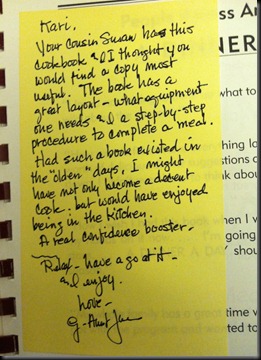 Kari,
Your cousin Susan has this
cookbook & I thought you
would find a copy most
useful. The book has a
great layout - what equipment
one needs & a step-by-step
procedure to complete a meal.
Had such a book existed in
the "olden" days, I might
have not only become a decent
cook, but would have enjoyed
being in the kitchen.
A real confidence booster -
Relax - have a go at it -
and enjoy.
Love -
G. Aunt
ss A
NER
what to
thing
suggestions
think about
when I w
I'm going
A DAY" shou
has a great time
ted to